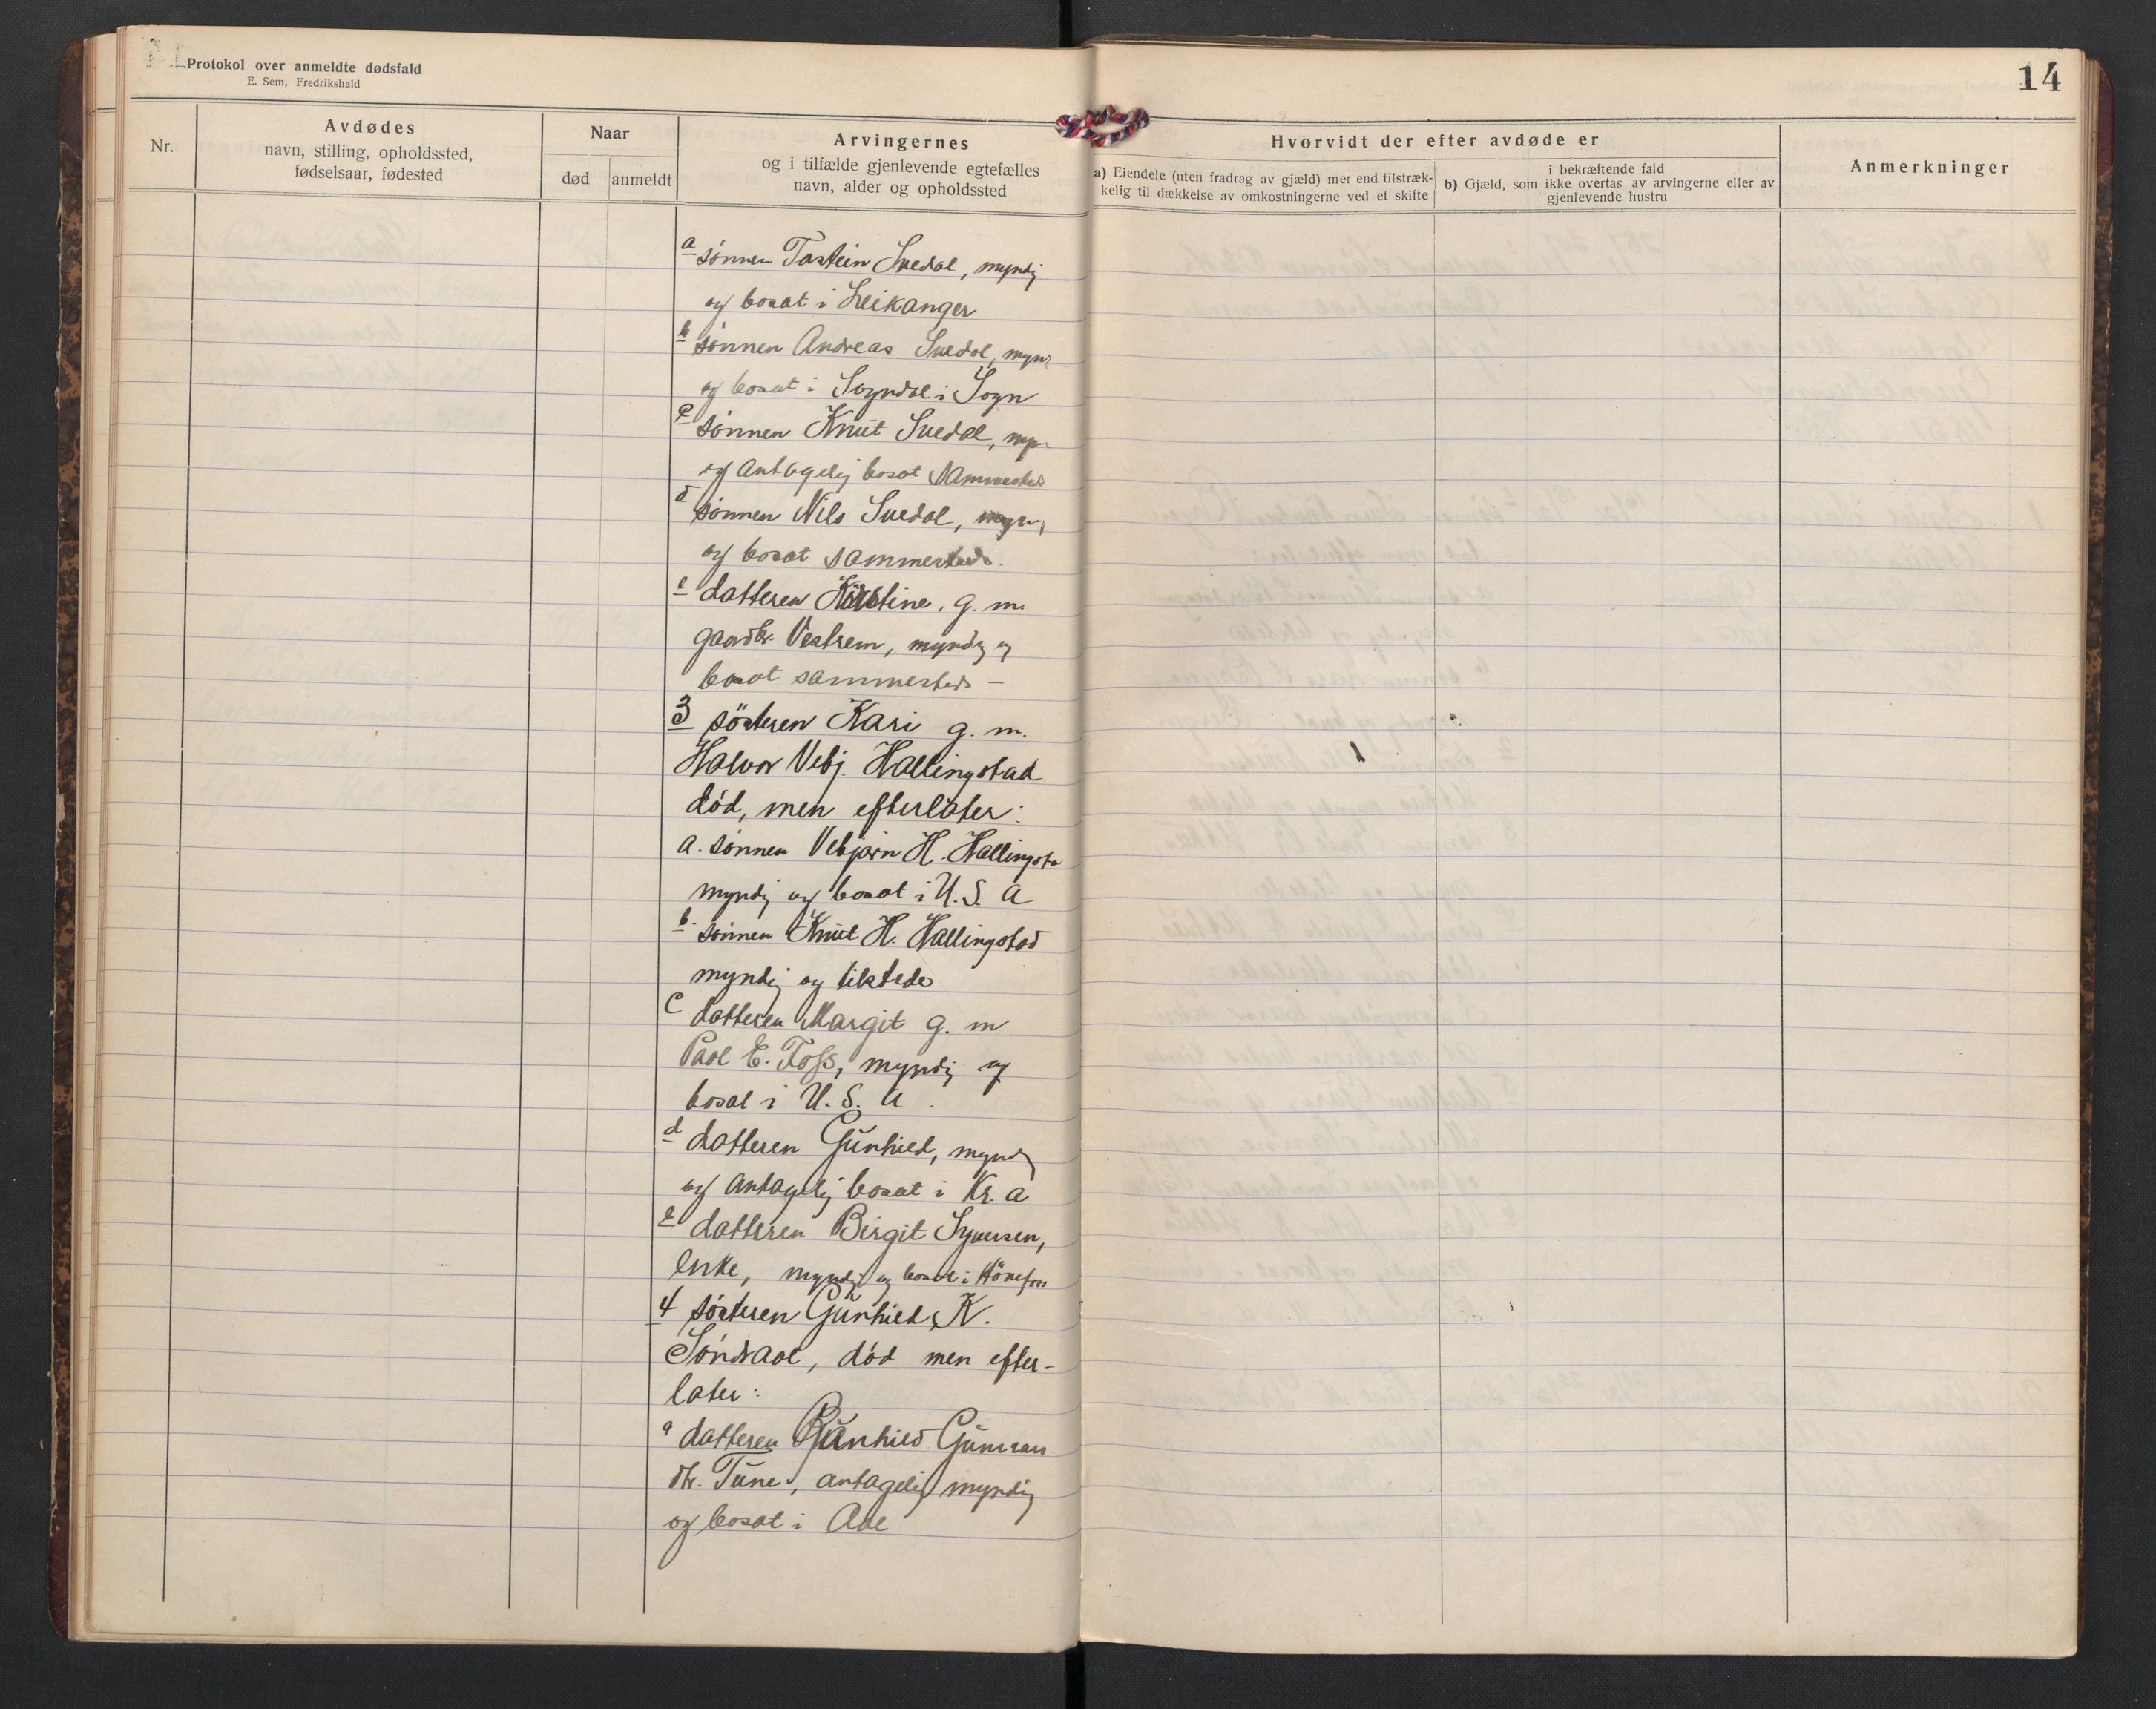 Protokol over anmeldte dødsfald
E. Sem, Fredrikshald
14
Nr.
Avdødes
navn, stilling, opholdssted,
fødselsaar, fødested
Naar
død
anmeldt
Arvingernes
og i tilfælde gjenlevende egtefælles
navn, alder og opholdssted
Hvorvidt der efter avdøde er
a) Eiendele (uten fradrag av gjæld) mer end tilstræk-
kelig til dækkelse av omkostningerne ved et skifte
i bekræftende fald
b) Gjæld, som ikke overtas av arvingerne eller av
gjenlevende hustru
Anmerkninger
a sønnen Tostein Svedal, myndig
og bosat i Leikanger
b sønnen Andreas Svedal, mynd
og bosat i Sogndal i Sogn
c sønnen Knut Svedal, myn
og antagelig bosat sammesteds
d sønnen Nils Svedal, mynd
og bosat sammesteds.
e datteren Kirstine, g. m.
gaardbr. Vestrem, myndig og
bosat sammesteds –
3 søsteren Kari g. m.
Halvor Vebj. Hallingstad
død, men efterlater:
a. sønnen Vebjørn H. Hallingsta
myndig og bosat i U.S. A
b. sønnen Knut H. Hallingstad
myndig og tilstede
c datteren Margit g. m
Paal E. Foss, myndig og
bosat i U. S. A.
d datteren Gunhild, myndig
og antagelig bosat i Kr. a
e datteren Birgit Syversen,
enke, myndig og bosat i Hönefoss
4 søsteren Gunhild K.
Söndraal, död men efter-
later:
a datteren Gunhild Gunnars
dtr. Tune, antagelig myndig
og bosat i Aal